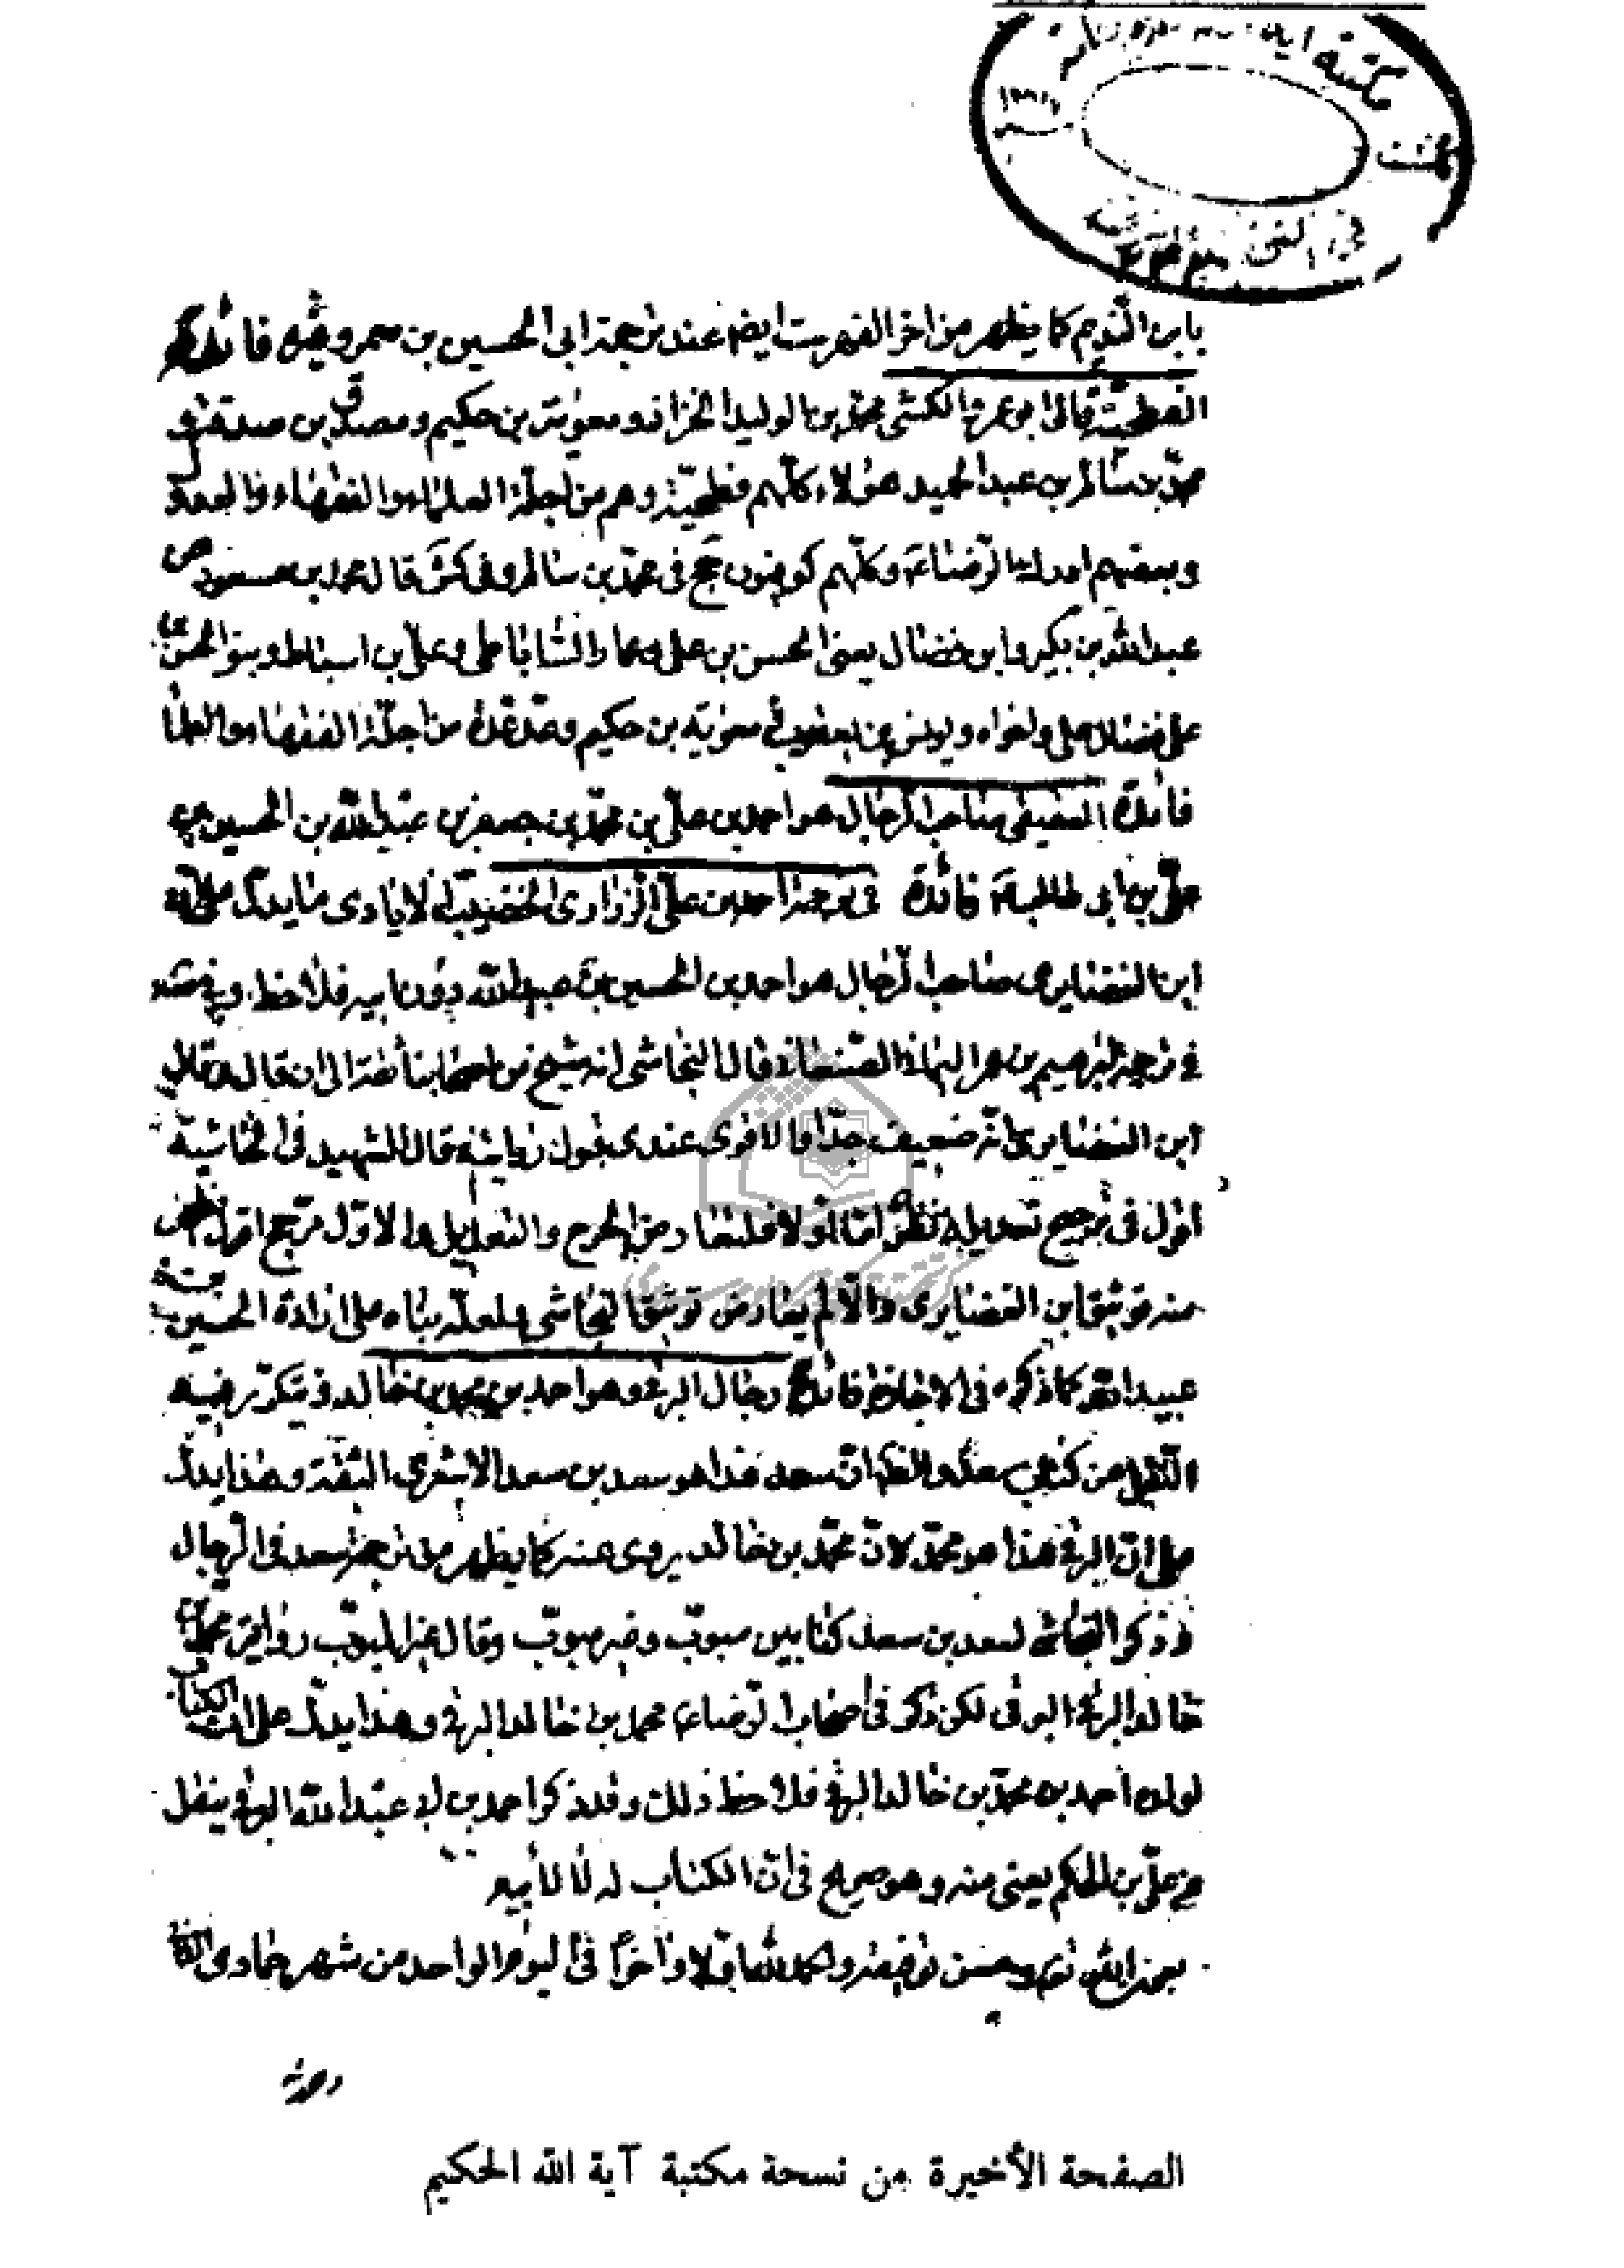 مكتبة
بابن النديم كما يظهر من اخر الفهرست ايضا عند ترجمة ابى الحسين بن فائدة
الفطحية قال ابو عمرو الكشى محمد بن الوليد الخزاز ومعوية بن حكيم ومصدق بن صدقة و
محمد بن سالم بن عبد الحميد هؤلاء كلهم فطحية وهم من اجلة العلماء والفقهاء والعدول
وبعضهم ادرك الرضاء وكلهم كوفيون جخ فى محمد بن سالم وفى كش قال محمد بن مسعود
عبد الله بن بكير وابن فضال يعنى الحسن بن على وعمار الساباطى وعلى بن اسباط وبنو الحسن بن
على فضال على واخواه ويونس بن يعقوب معوية بن حكيم وعد عدة من اجلة الفقهاء والعلماء
فائدة العقيقى صاحب الرجال هو احمد بن على بن محمد بن جعفر بن عبد الله بن الحسين بن
على بن ابى طالب فائدة فى ترجمة احمد بن على الرازى الخضيب الايادى ما يدل على ان
ابن الغضايرى صاحب الرجال هو احمد بن الحسين بن عبيد الله دون ابيه فلاحظ
فى ترجمة ابرهيم بن عمر اليمانى الصنعانى قال النجاشى انه شيخ من اصحابنا ثقة الى ان قال وقال
ابن الغضايرى انه ضعيف جدا والاقوى عندى قبول روايته قال الشهيد فى الحاشية
اقول فى ترجيح تعديله نظر اما اولا فلتعارض الجرح والتعديل والاول مرجح
منه توثيق ابن الغضايرى والا لم يعارض توثيق النجاشى ولعله بناه على ارادة الحسين بن
عبيد الله كما ذكره فى الاجازة فائدة رجال البرقى وهو احمد بن محمد بن خالد قد يتكرر فيه
النقل من كتاب سعد والظ ان سعد هذا هو سعد بن سعد الاشعرى الثقة وهذا يدل
على ان البرقى هذا هو محمد لان محمد بن خالد يروى عنه كما يظهر من ترجمة سعد فى الرجال
وذكر النجاشى لسعد بن سعد كتابين مبوب وغير مبوب وقال غير المبوب رواية محمد بن
خالد البرقى لكن ذكر فى اصحاب الرضاء محمد بن خالد البرقى وهذا يدل على ان الكتاب
لولده احمد بن محمد بن خالد البرقى فلاحظ ذلك وقد ذكر احمد بن ابى عبد الله البرقى ينقل
عن على بن الحكم يعنى منه وهو صريح فى ان الكتاب له لا لأبيه
بعون الله وحسن توفيقه والحمد لله اولا واخرا فى اليوم الواحد من شهر جمادى
الصفحة الأخيرة من نسحة مكتبة آية الله الحكيم